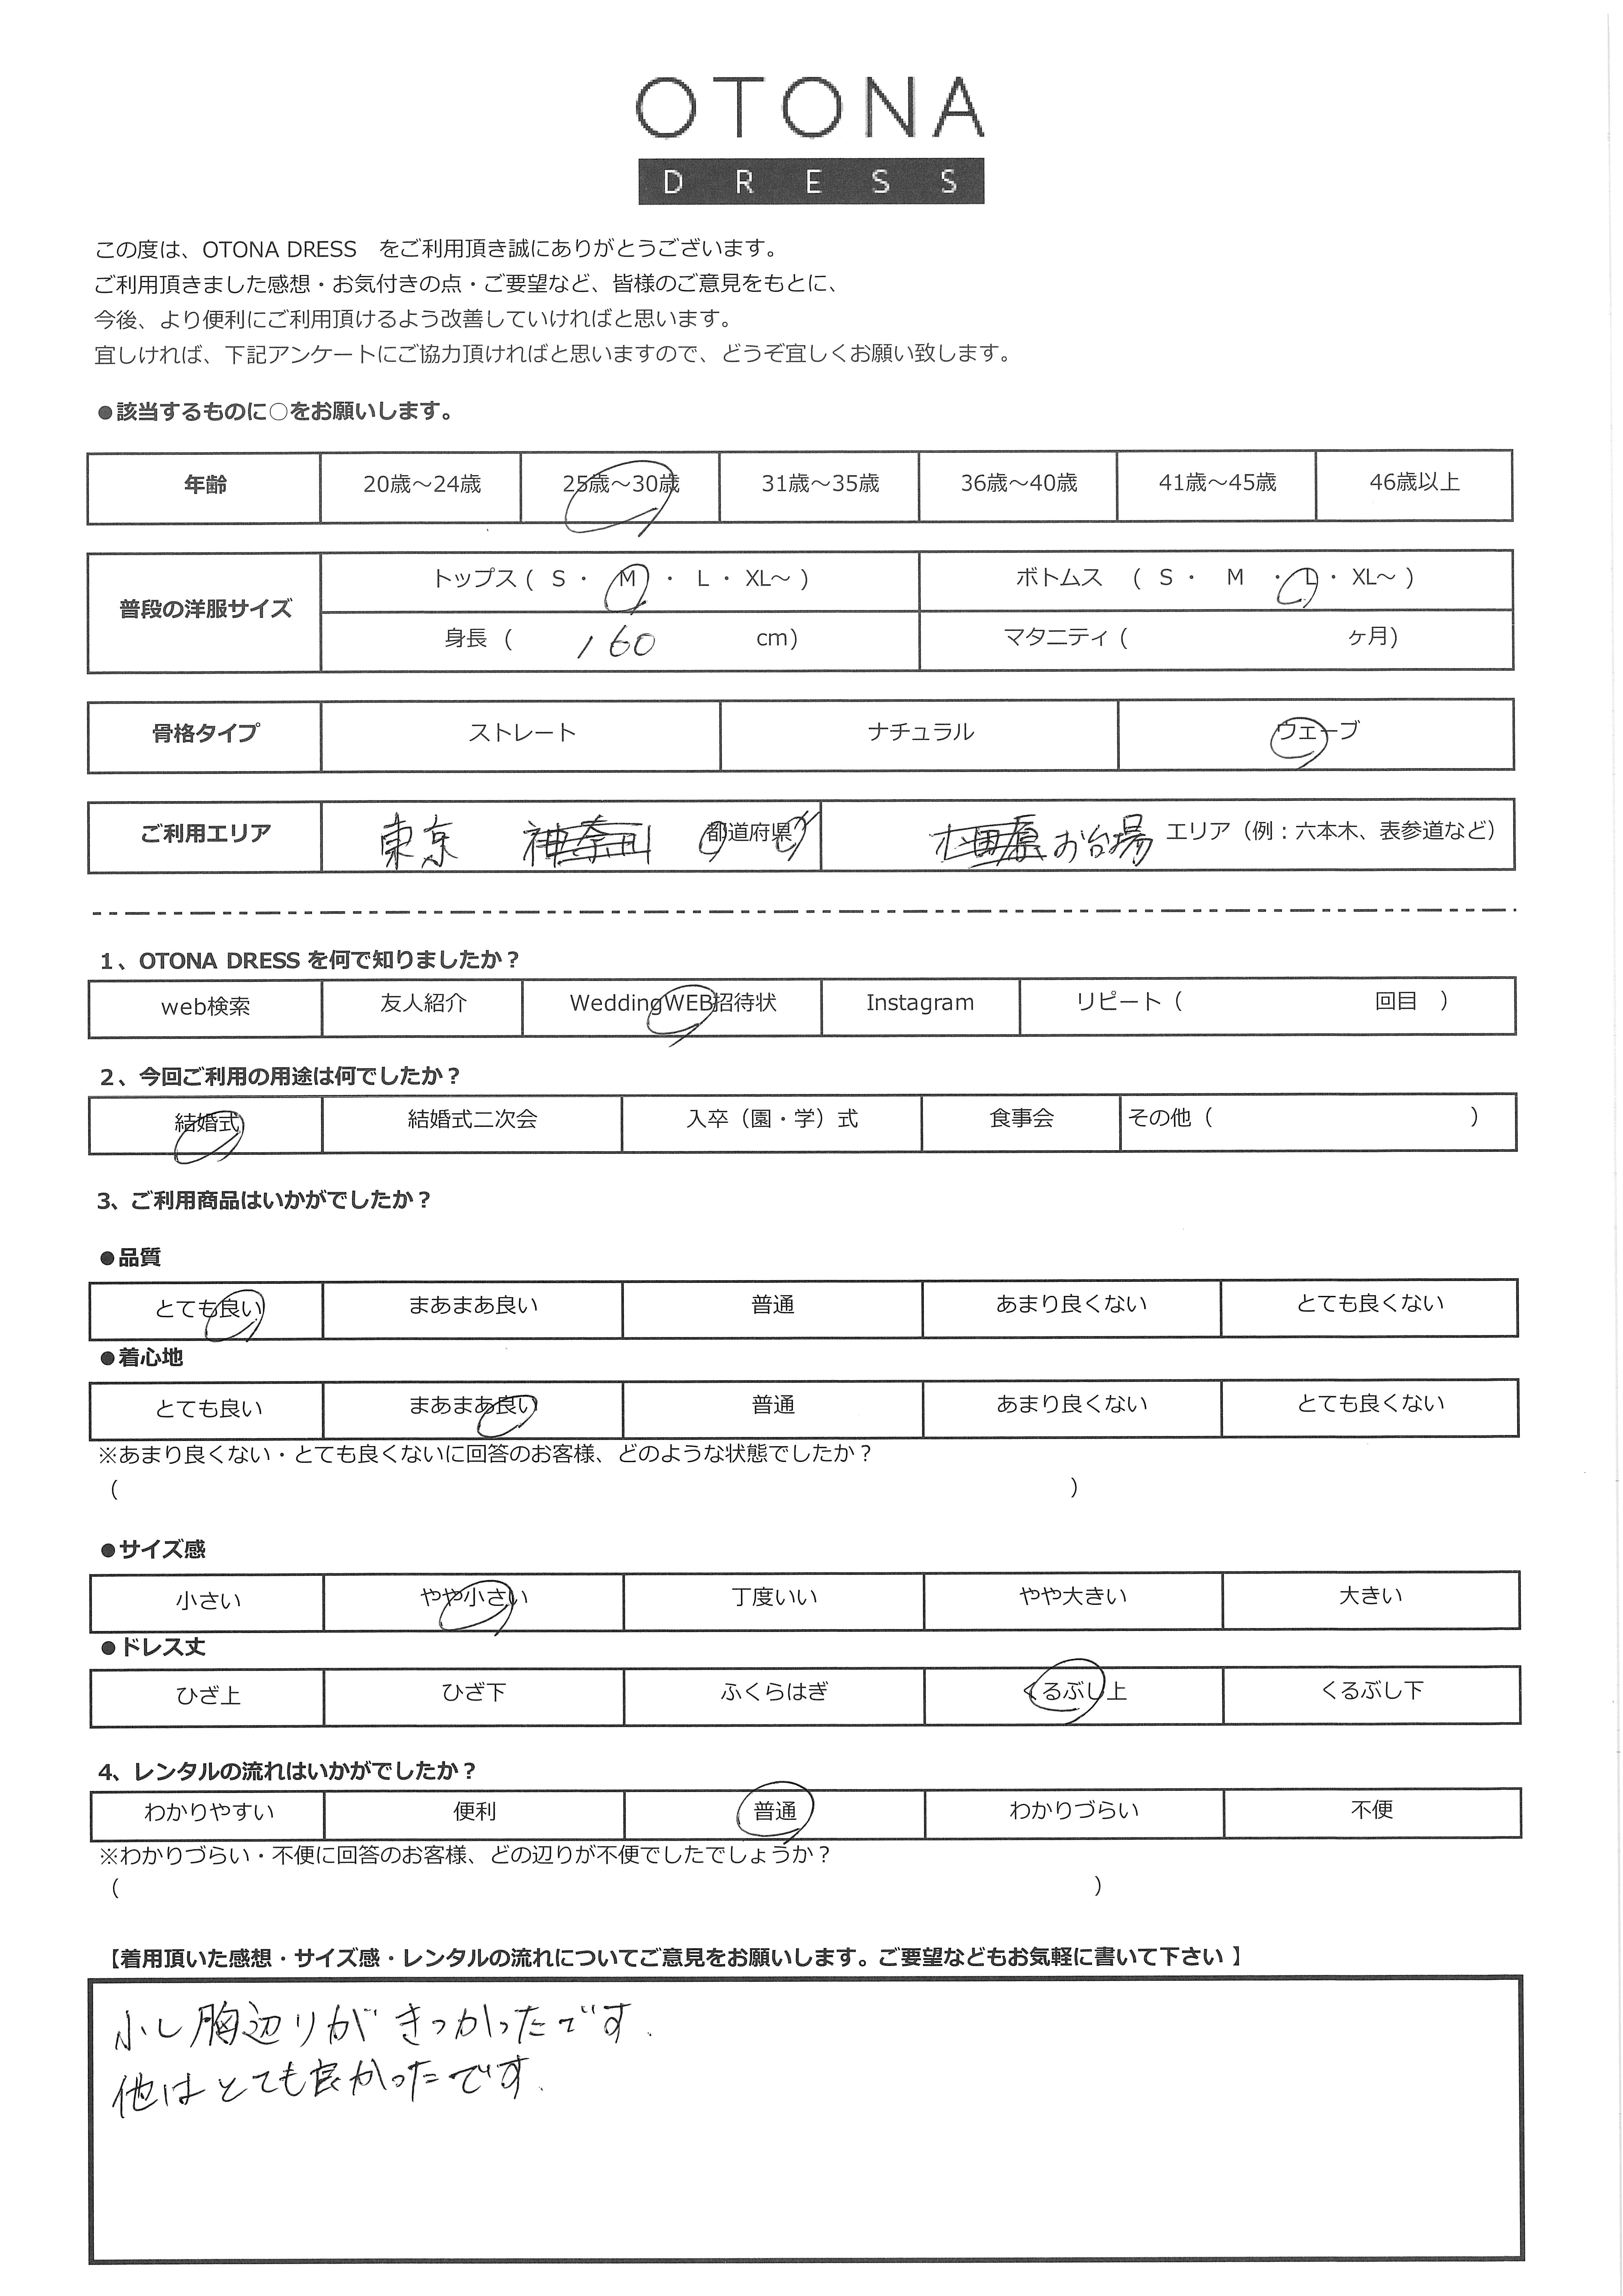 OTONA
DRESS
この度は、OTONA DRESS をご利用頂き誠にありがとうございます。
ご利用頂きました感想・お気付きの点・ご要望など、皆様のご意見をもとに、
今後、より便利にご利用頂けるよう改善していければと思います。
宜しければ、下記アンケートにご協力頂ければと思いますので、どうぞ宜しくお願い致します。
●該当するものに○をお願いします。
年齢 20歳～24歳 25歳～30歳 31歳～35歳 36歳～40歳 41歳～45歳 46歳以上
普段の洋服サイズ トップス ( S ・ M ・ L ・ XL～ ) ボトムス ( S ・ M ・ L ・ XL～ )
身長 ( 160 cm) マタニティ ( ヶ月)
骨格タイプ ストレート ナチュラル ウェーブ
ご利用エリア 東京 神奈川 都道府県 小田原 お台場 エリア（例：六本木、表参道など）
1、OTONA DRESS を何で知りましたか？
web検索 友人紹介 WeddingWEB招待状 Instagram リピート（ 回目 ）
2、今回ご利用の用途は何でしたか？
結婚式 結婚式二次会 入卒（園・学）式 食事会 その他（ ）
3、ご利用商品はいかがでしたか？
●品質
とても良い まあまあ良い 普通 あまり良くない とても良くない
●着心地
とても良い まあまあ良い 普通 あまり良くない とても良くない
※あまり良くない・とても良くないに回答のお客様、どのような状態でしたか？
（ ）
●サイズ感
小さい やや小さい 丁度いい やや大きい 大きい
●ドレス丈
ひざ上 ひざ下 ふくらはぎ くるぶし上 くるぶし下
4、レンタルの流れはいかがでしたか？
わかりやすい 便利 普通 わかりづらい 不便
※わかりづらい・不便に回答のお客様、どの辺りが不便でしたでしょうか？
（ ）
【着用頂いた感想・サイズ感・レンタルの流れについてご意見をお願いします。ご要望などもお気軽に書いて下さい 】
少し胸辺りがきつかったです.
他はとても良かったです.